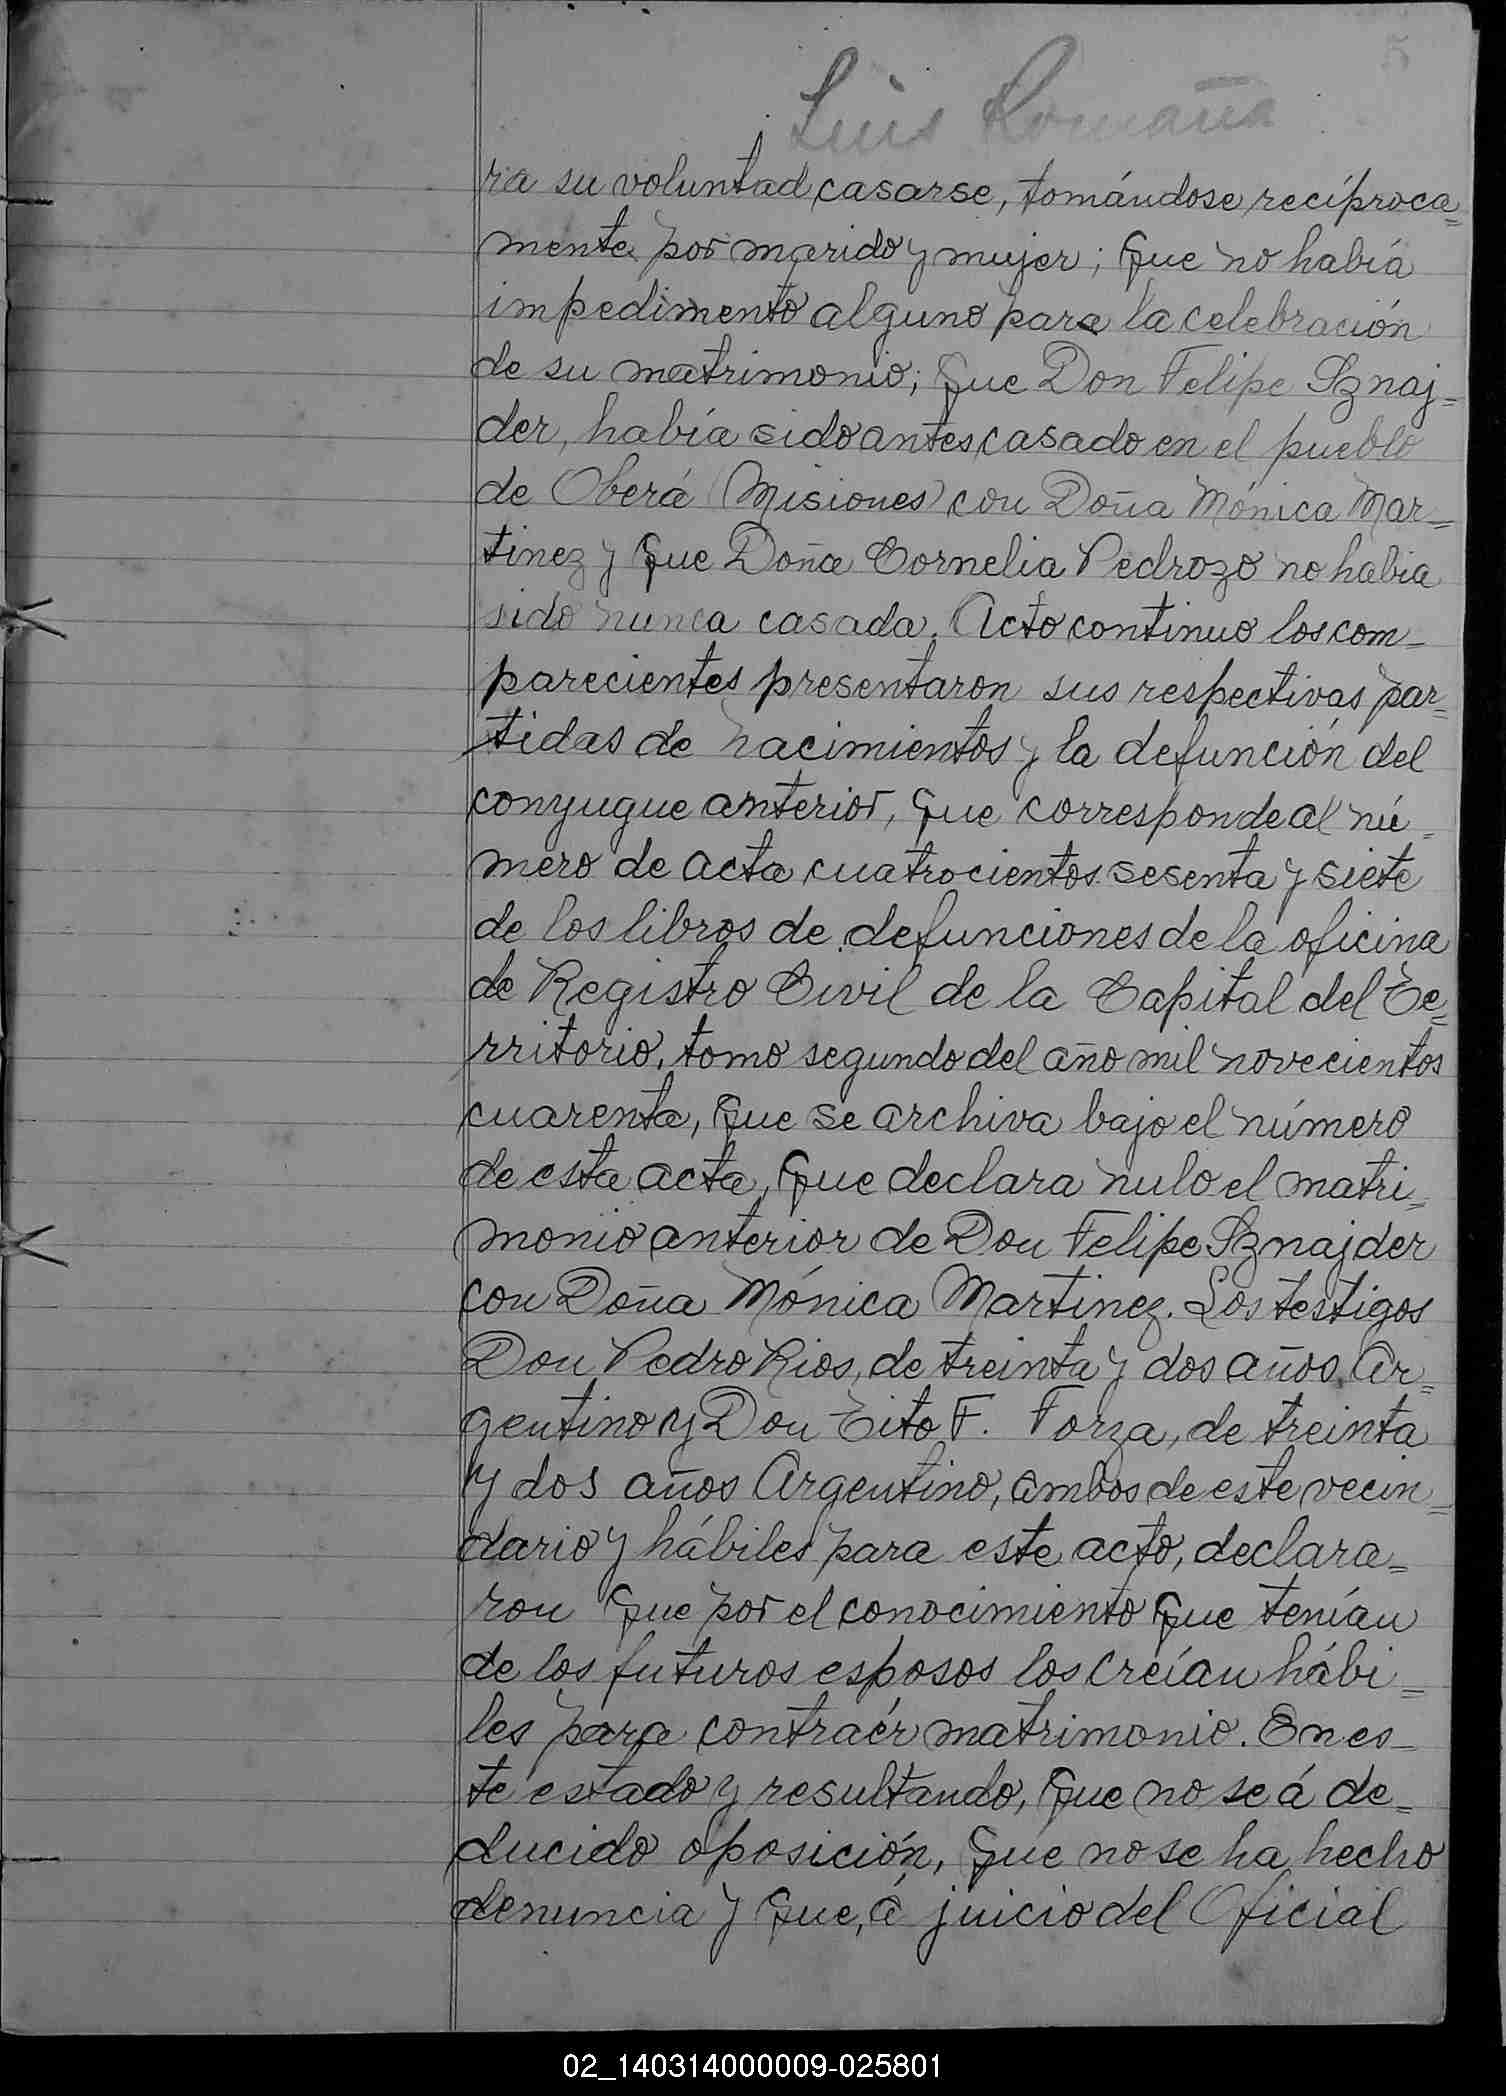 5
Luis Romaña
ria su voluntad casarse, tomándose recíproca=
mente por marido y mujer; que no había
impedimento alguno para la celebración
de su matrimonio; que Don Felipe Sznaj=
der, había sido antes casado en el pueblo
de Oberá (Misiones) con Doña Mónica Mar=
tinez y que Doña Cornelia Pedrozo no habia
sido nunca casada. Acto continuo los com=
parecientes presentaron sus respectivas par=
tidas de nacimientos y la defunción del
conyugue anterior, que corresponde al nú=
mero de acta cuatrocientos sesenta y siete
de los libros de defunciones de la oficina
de Registro Civil de la Capital del Te=
rritorio, tomo segundo del año mil novecientos
cuarenta, que se archiva bajo el número
de esta acta, que declara nulo el matri=
monio anterior de Don Felipe Sznajder
con Doña Mónica Martinez. Los testigos
Don Pedro Rios, de treinta y dos años, Ar=
gentino y Don Tito F. Forza, de treinta
y dos años Argentino, ambos de este vecin=
dario y hábiles para este acto, declara=
ron que por el conocimiento que tenían
de los futuros esposos los creían hábi=
les para contraér matrimonio. En es=
te estado y resultando, que no se á de=
ducido oposición, que no se ha hecho
denuncia y que, á juicio del Oficial
02_140314000009-025801